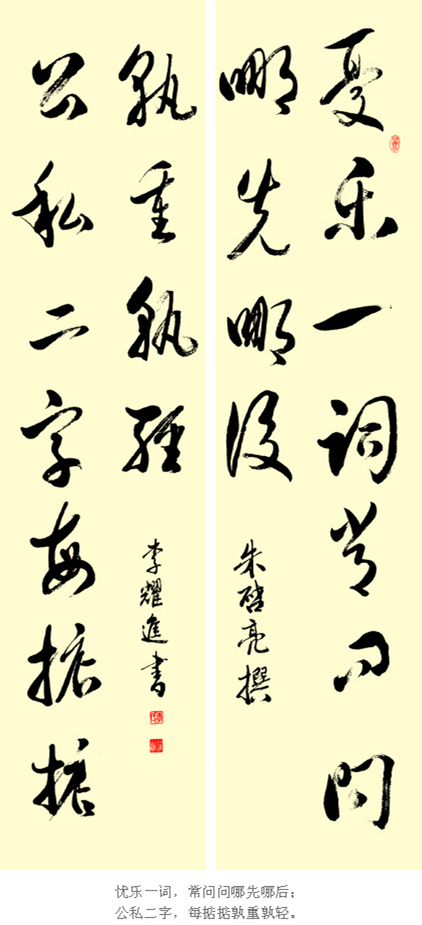 憂乐一词常问问
哪先哪後
朱啓亮撰
公私二字每掂掂
孰重孰轻
李耀進書
忧乐一词，常问问哪先哪后；
公私二字，每掂掂孰重孰轻。